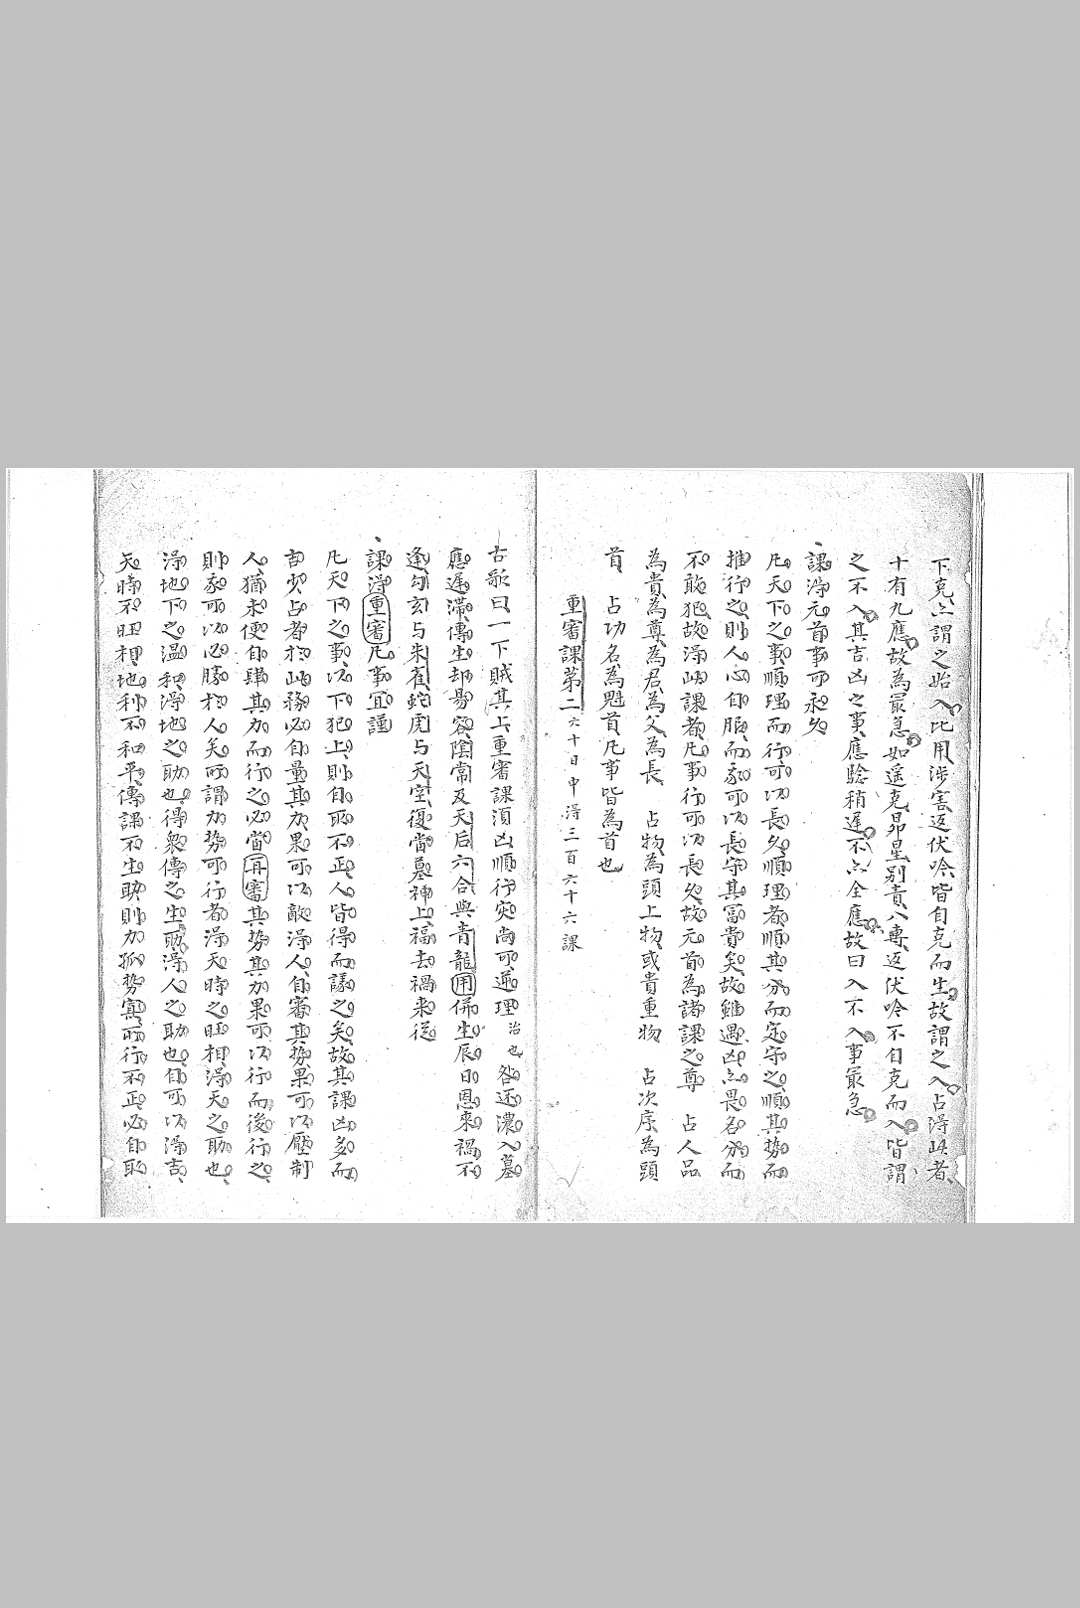 下克上謂之始入比用涉害返伏吟皆自克而生故謂之入占得此者
十有九應故為最急如遙克昴星別責八專返伏吟不自克而入皆謂
之不入其吉凶之事應驗稍遲不上全應故曰入不入事最急
課得元首事可永久
凡天下之事順理而行可以長久順理者順其分而定守之順其勢而
推行之則人心自服而家可以長守其富貴矣故雖遇凶亦畏名分而
不敢犯故得此課者凡事行可以長久故元首為諸課之尊 占人品
為貴為尊為君為父為長 占物為頭上物或貴重物 占次序為頭
首 占功名為魁首凡事皆為首也
重審課第二 六十日中得三百六十六課
古歌曰一下賊其上重審課須凶順行災尚可逆理治也咎还濃入墓
應遲滯傳生却易容陰常及天后六合與青龍用併生辰日恩來禍不
逢勾玄与朱雀蛇虎与天空復當墓神上福去禍來從
課得重審凡事宜謹
凡天下之事以下犯上則自取不正人皆得而議之矣故其課凶多而
吉少占者於此務必自量其力果可以敵得人自審其勢果可以壓制
人猶未便自肆其力而行之必當再審其勢其力果可以行而後行之
則家可以必勝於人矣所謂力勢可行者得天時之旺相得天之助也
得地下之溫和得地之助也得眾傳之生助得人之助也自可以得吉
天時不旺相地利不和平傳課不生助則力孤勢寡所行不正必自取